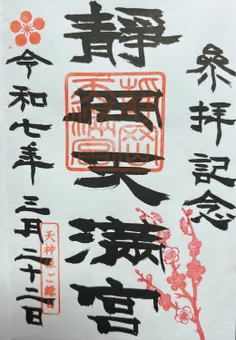 参拝記念
靜岡天満宮
令和七年三月二十二日
天神様ご縁日